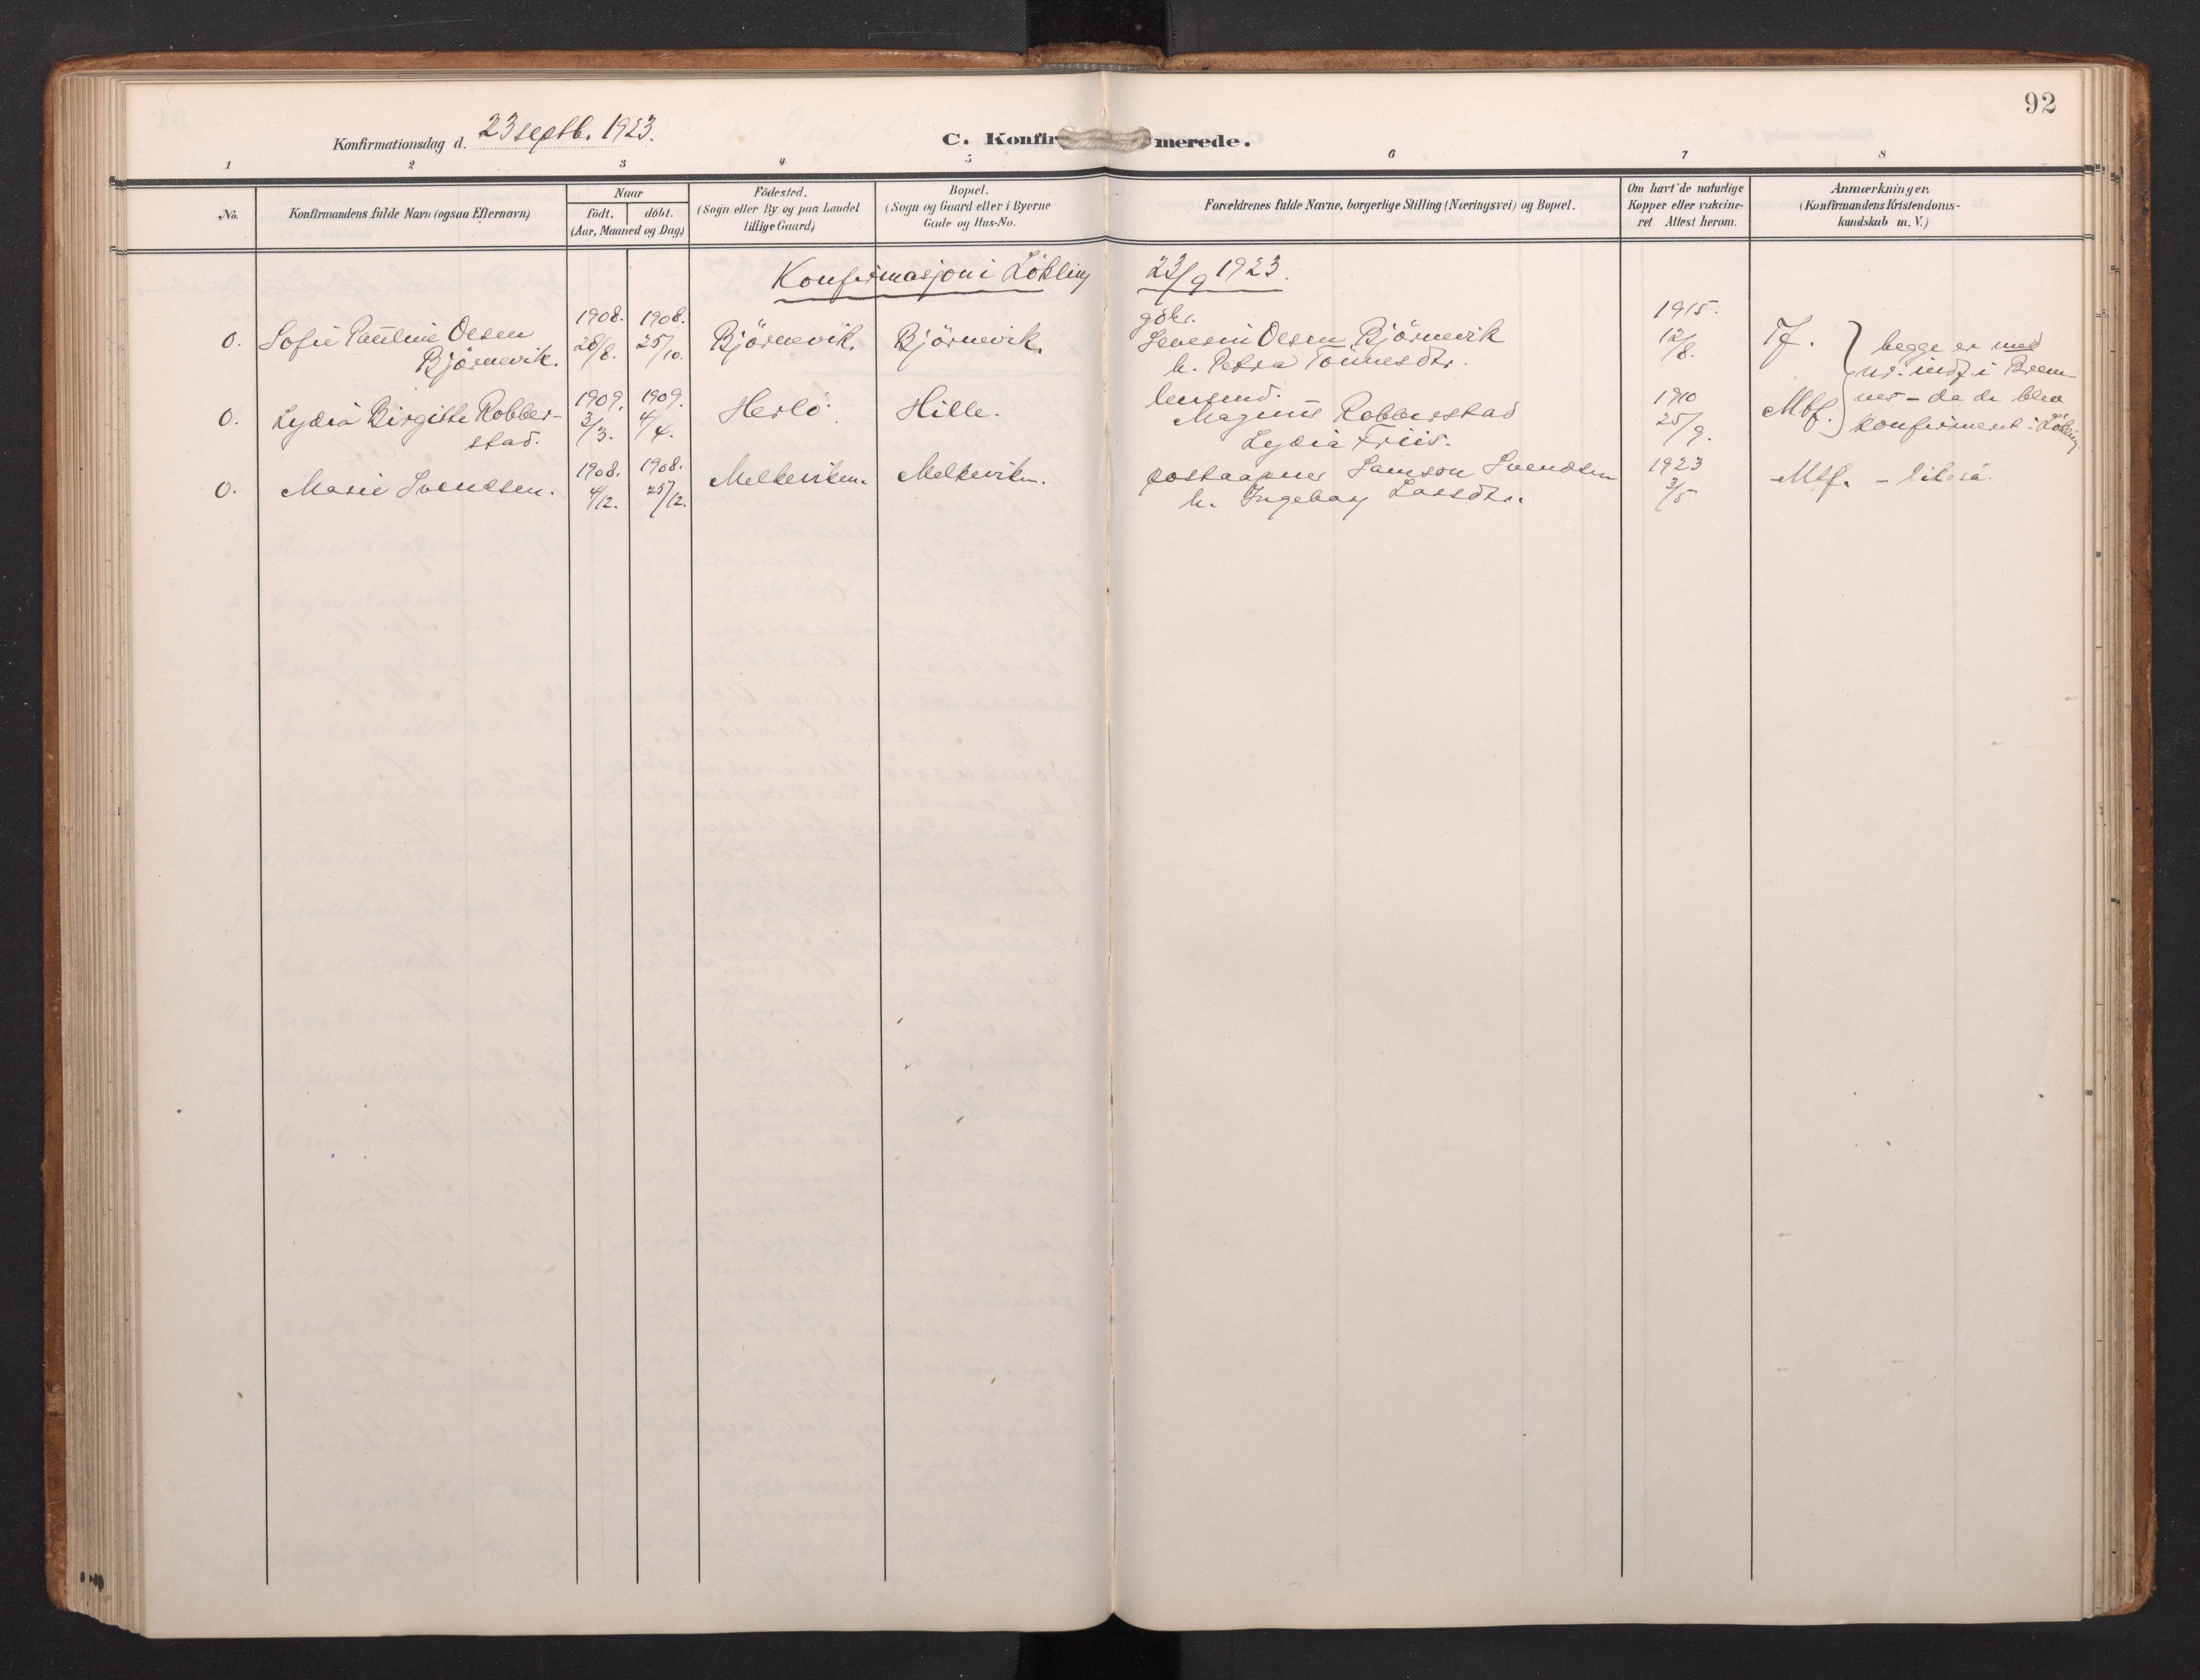 92
Konfirmationsdag d. 23 septb. 1923.
C. Konfir merede.
1 2 3 4 5 6 7 8
No.
Konfirmandens fulde Navn (ogsaa Efternavn)
Naar
født. döbt.
(Aar, Maaned og Dag)
Födested.
(Sogn eller By og paa Landet
tillige Gaard)
Bopæl.
(Sogn og Gaard eller i Byerne
Gade og Hus-No.
Forældrenes fulde Navne, borgerlige Stilling (Næringsvei) og Bopæl.
Om havt de naturlige
Kopper eller vakcine-
ret Attest herom.
Anmærkninger.
(Konfirmandens Kristendoms-
kundskab m. V.)
Konfirmasjon i Lökling 23/9 1923.
0. Sofie Pauline Olsen
Björnevik.
1908.
28/8.
1908.
25/10.
Björnevik.
Björnevik.
gbr.
Severin Olsen Björnevik
h. Petra Tönnesdtr.
1915.
12/8.
Tf.
0. Lydia Birgitte Robber-
stad.
1909.
3/3.
1909.
4/4.
Herlö.
Hille.
lensmd.
Magnus Robberstad
Lydia Friis.
1910
25/9.
Mtf.
begge er med
nr. indf. i Brem-
nes - da de blev
konfirmert i Lökling
0. Marie Svendsen.
1908.
4/12.
1908.
25/12.
Melkeviken.
Melkeviken.
postaapner Samson Svendsen
h. Ingeborg Larsdtr.
1923
3/5
Mtf. -